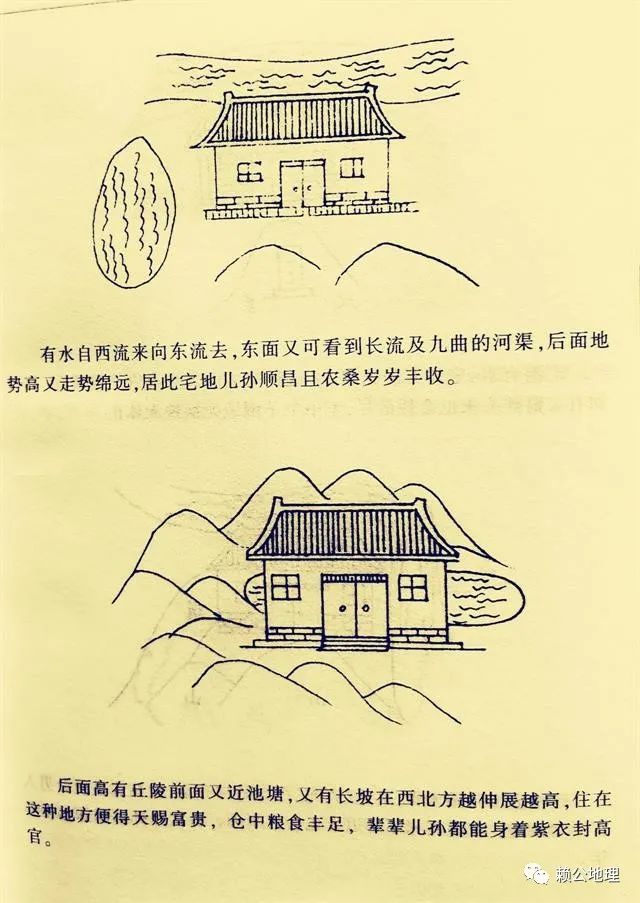 有水自西流来向东流去,东面又可看到长流及九曲的河渠,后面地
势高又走势绵远,居此宅地儿孙顺昌且农桑岁岁丰收。
后面高有丘陵前面又近池塘,又有长坡在西北方越伸展越高,住在
这种地方便得天赐富贵，仓中粮食丰足，辈辈儿孙都能身着紫衣封高
官。
赖公地理